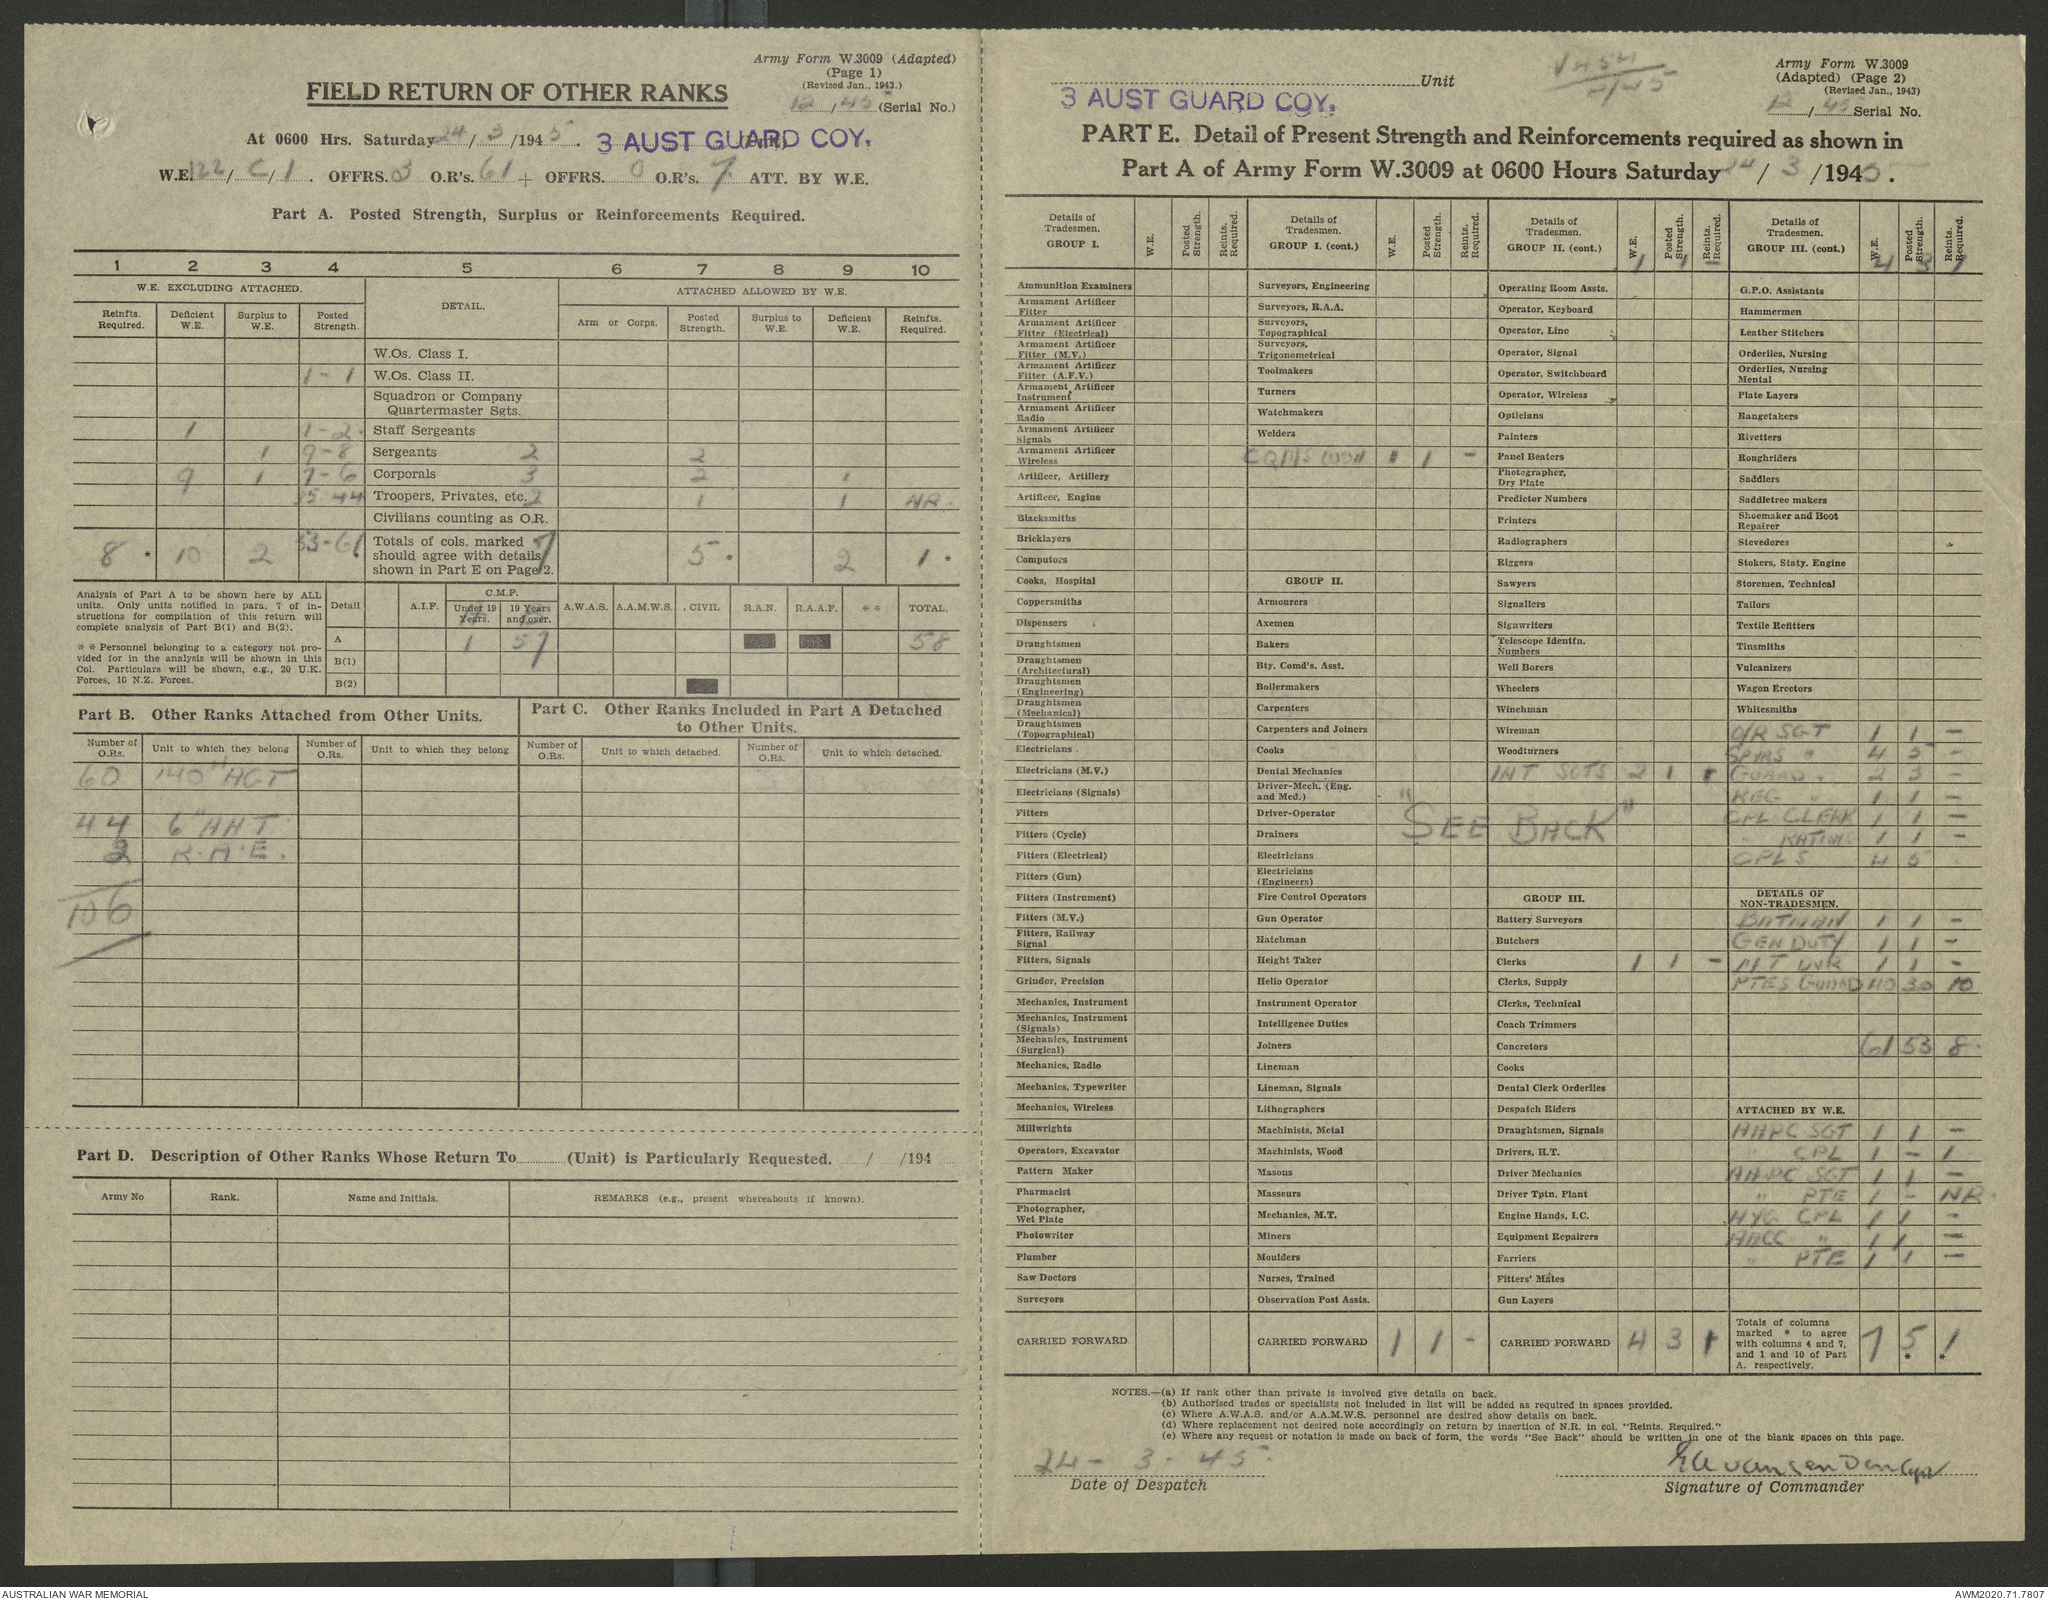 Army Form W.3009 (Adapted)
(Page 1)
(Revised Jan., 1943.)
12/45 (Serial No.)
FIELD RETURN OF OTHER RANKS
At 0600 Hrs. Saturday 24/3/1945. 3 AUST GUARD COY. (Unit)
W.E. 122/C/1. OFFRS. 3 O.R's. 61 + OFFRS. 0 O.R's. 7 ATT. BY W.E.
Part A. Posted Strength, Surplus or Reinforcements Required.
1 2 3 4 5 6 7 8 9 10
W.E. EXCLUDING ATTACHED. DETAIL. ATTACHED ALLOWED BY W.E.
Reinfts. Required. Deficient W.E. Surplus to W.E. Posted Strength. Arm or Corps. Posted Strength. Surplus to W.E. Deficient W.E. Reinfts. Required.
W.Os. Class I.
1 - 1 W.Os. Class II.
Squadron or Company Quartermaster Sgts.
1 1 - 2 Staff Sergeants
1 9 - 8 Sergeants 2 2
9 1 7 - 6 Corporals 3 2 1
35 44 Troopers, Privates, etc. 2 1 1 NR.
Civilians counting as O.R.
8 * 10 2 53-61 * Totals of cols. marked * should agree with details shown in Part E on Page 2. 7 5 * 2 1 *
Analysis of Part A to be shown here by ALL units. Only units notified in para. 7 of instructions for compilation of this return will complete analysis of Part B(1) and B(2).
* * Personnel belonging to a category not provided for in the analysis will be shown in this Col. Particulars will be shown, e.g., 20 U.K. Forces, 10 N.Z. Forces.
Detail A.I.F. C.M.F. Under 19 Years. 19 Years and over. A.W.A.S. A.A.M.W.S. CIVIL R.A.N. R.A.A.F. * * TOTAL.
A 1 57 58
B(1)
B(2)
Part B. Other Ranks Attached from Other Units.
Part C. Other Ranks Included in Part A Detached to Other Units.
Number of O.Rs. Unit to which they belong Number of O.Rs. Unit to which they belong Number of O.Rs. Unit to which detached. Number of O.Rs. Unit to which detached.
60 140" AGT
44 6" AHT
2 R.A.E.
106
Part D. Description of Other Ranks Whose Return To (Unit) is Particularly Requested. / /194
Army No Rank. Name and Initials. REMARKS (e.g., present whereabouts if known).
Unit
Army Form W.3009
(Adapted) (Page 2)
(Revised Jan., 1943)
12/45 Serial No.
3 AUST GUARD COY.
PART E. Detail of Present Strength and Reinforcements required as shown in
Part A of Army Form W.3009 at 0600 Hours Saturday 24/3/1945.
Details of Tradesmen. GROUP I. W.E. Posted Strength. Reints. Required.
Ammunition Examiners
Armament Artificer Fitter
Armament Artificer Fitter (Electrical)
Armament Artificer Fitter (M.V.)
Armament Artificer Fitter (A.F.V.)
Armament Artificer Instrument
Armament Artificer Radio
Armament Artificer Signals
Armament Artificer Wireless
Artificer, Artillery
Artificer, Engine
Blacksmiths
Bricklayers
Computors
Cooks, Hospital
Coppersmiths
Dispensers
Draughtsmen
Draughtsmen (Architectural)
Draughtsmen (Engineering)
Draughtsmen (Mechanical)
Draughtsmen (Topographical)
Electricians
Electricians (M.V.)
Electricians (Signals)
Fitters
Fitters (Cycle)
Fitters (Electrical)
Fitters (Gun)
Fitters (Instrument)
Fitters (M.V.)
Fitters, Railway Signal
Fitters, Signals
Grinder, Precision
Mechanics, Instrument
Mechanics, Instrument (Signals)
Mechanics, Instrument (Surgical)
Mechanics, Radio
Mechanics, Typewriter
Mechanics, Wireless
Millwrights
Operators, Excavator
Pattern Maker
Pharmacist
Photographer, Wet Plate
Photowriter
Plumber
Saw Doctors
Surveyors
CARRIED FORWARD
Details of Tradesmen. GROUP I. (cont.) W.E. Posted Strength. Reints. Required.
Surveyors, Engineering
Surveyors, R.A.A.
Surveyors, Topographical
Surveyors, Trigonometrical
Toolmakers
Turners
Watchmakers
Welders
CQMS 1 -
GROUP II.
Armourers
Axemen
Bakers
Bty. Comd's. Asst.
Boilermakers
Carpenters
Carpenters and Joiners
Cooks
Dental Mechanics
Driver-Mech. (Eng. and Med.)
Driver-Operator
Drainers
Electricians
Electricians (Engineers)
Fire Control Operators
Gun Operator
Hatchman
Height Taker
Helio Operator
Instrument Operator
Intelligence Duties
Joiners
Lineman
Lineman, Signals
Lithographers
Machinists, Metal
Machinists, Wood
Masons
Masseurs
Mechanics, M.T.
Miners
Moulders
Nurses, Trained
Observation Post Assts.
CARRIED FORWARD 1 1 -
Details of Tradesmen. GROUP II. (cont.) W.E. Posted Strength. Reints. Required.
1 1 -
Operating Room Assts.
Operator, Keyboard
Operator, Line
Operator, Signal
Operator, Switchboard
Operator, Wireless
Opticians
Painters
Panel Beaters
Photographer, Dry Plate
Predictor Numbers
Printers
Radiographers
Riggers
Sawyers
Signallers
Signwriters
Telescope Identfn. Numbers
Well Borers
Wheelers
Winchman
Wireman
Woodturners
INT SGTS 2 1 1
"SEE BACK"
GROUP III.
Battery Surveyors
Butchers
Clerks 1 1 -
Clerks, Supply
Clerks, Technical
Coach Trimmers
Concretors
Cooks
Dental Clerk Orderlies
Despatch Riders
Draughtsmen, Signals
Drivers, H.T.
Driver Mechanics
Driver Tptn. Plant
Engine Hands, I.C.
Equipment Repairers
Farriers
Fitters' Mates
Gun Layers
CARRIED FORWARD 4 3 1
Details of Tradesmen. GROUP III. (cont.) W.E. Posted Strength. Reints. Required.
4 3 1
G.P.O. Assistants
Hammermen
Leather Stitchers
Orderlies, Nursing
Orderlies, Nursing Mental
Plate Layers
Rangetakers
Rivetters
Roughriders
Saddlers
Saddletree makers
Shoemaker and Boot Repairer
Stevedores
Stokers, Staty. Engine
Storemen, Technical
Tailors
Textile Refitters
Tinsmiths
Vulcanizers
Wagon Erectors
Whitesmiths
O/R SGT 1 1 -
SPVRS " 4 5 -
GUARD " 2 3 -
REG " 1 1 -
CPL CLERK 1 1 -
" RATIONS 1 1 -
CPLS 4 5
DETAILS OF NON-TRADESMEN.
BATMAN 1 1 -
GEN DUTY 1 1 -
MT DVR 1 1 -
PTES GUARD 40 30 10
61 53 8.
ATTACHED BY W.E.
AAPC SGT 1 1 -
CPL 1 - 1
AAPC SGT 1 1 -
" PTE 1 - NR.
HYG CPL 1 1 -
AACC " 1 1 -
" PTE 1 1 -
Totals of columns marked * to agree with columns 4 and 7, and 1 and 10 of Part A. respectively. 7 5 * 1 *
NOTES.—(a) If rank other than private is involved give details on back.
(b) Authorised trades or specialists not included in list will be added as required in spaces provided.
(c) Where A.W.A.S. and/or A.A.M.W.S. personnel are desired show details on back.
(d) Where replacement not desired note accordingly on return by insertion of N.R. in col. "Reints. Required."
(e) Where any request or notation is made on back of form, the words "See Back" should be written in one of the blank spaces on this page.
24 - 3 - 45.
Date of Despatch
Signature of Commander
AUSTRALIAN WAR MEMORIAL
AWM2020.71.7807